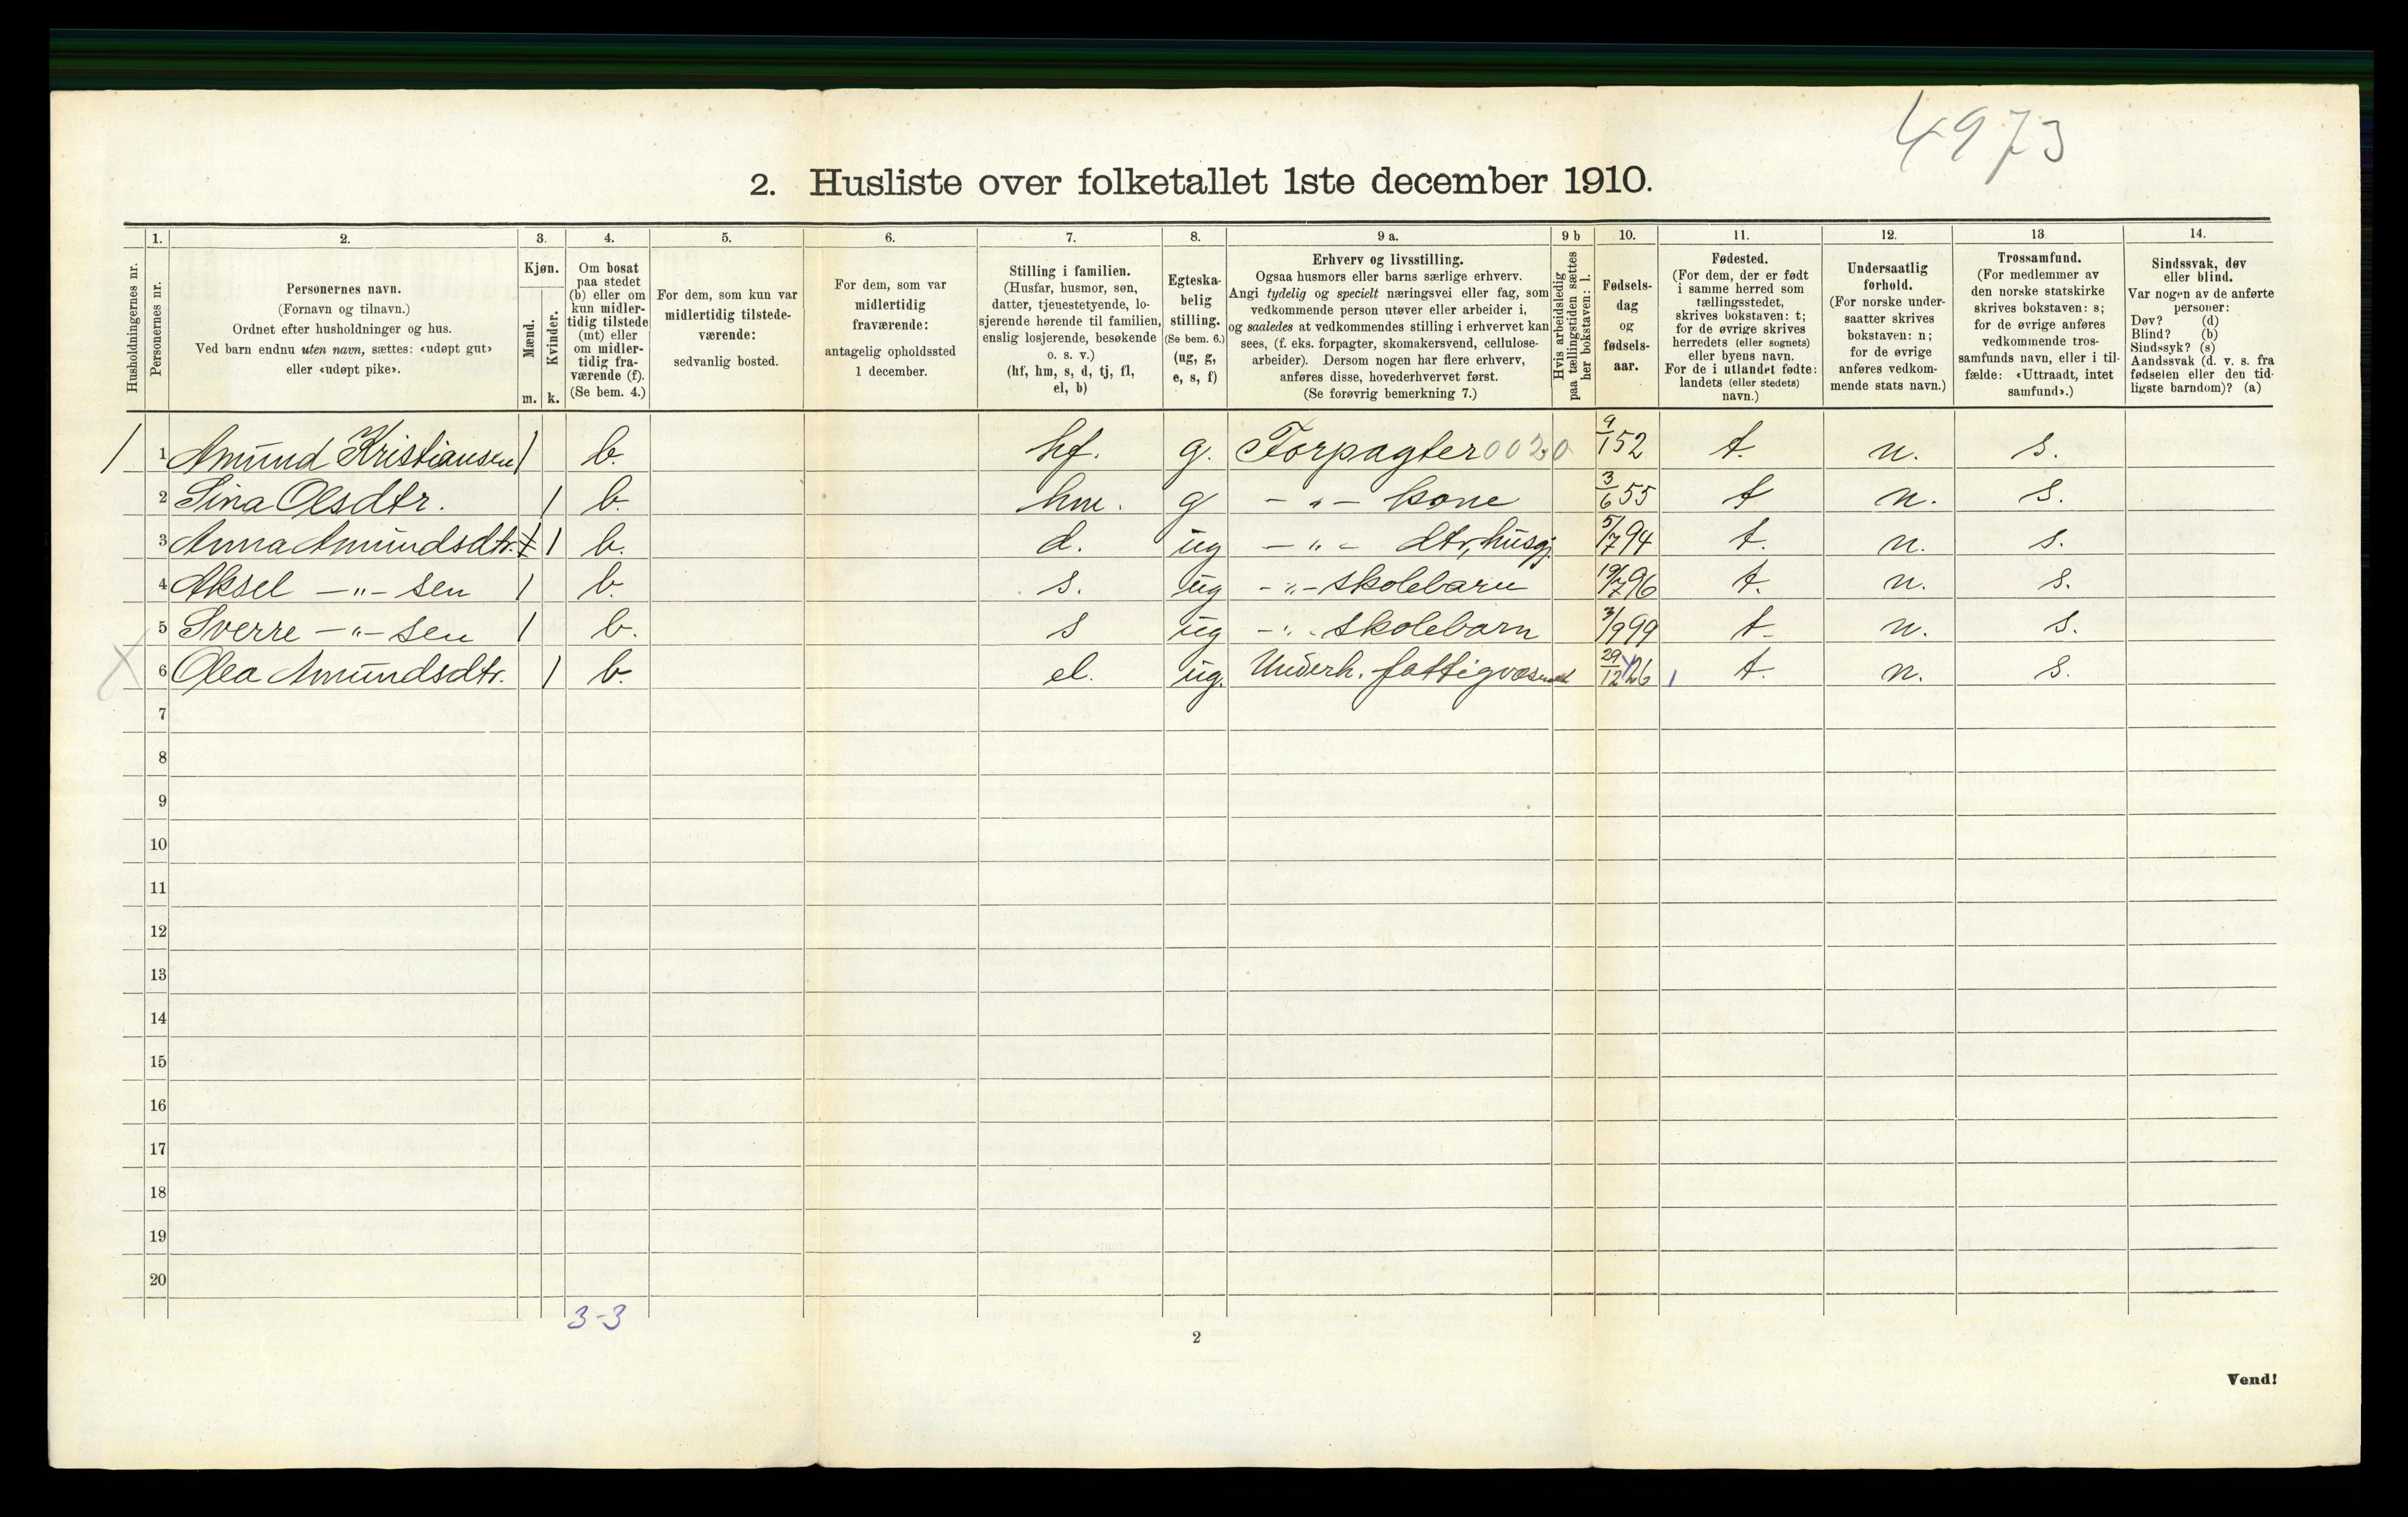 4973
2. Husliste over folketallet 1ste december 1910.
Husholdningernes nr.
1.
Personernes nr.
2.
Personernes navn.
(Fornavn og tilnavn.)
Ordnet efter husholdninger og hus.
Ved barn endnu uten navn, sættes: «udøpt gut»
eller «udøpt pike».
3.
Kjøn.
Mænd.
Kvinder.
m. k.
4.
Om bosat
paa stedet
(b) eller om
kun midler-
tidig tilstede
(mt) eller
om midler-
tidig fra-
værende (f).
(Se bem. 4.)
5.
For dem, som kun var
midlertidig tilstede-
værende:
sedvanlig bosted.
6.
For dem, som var
midlertidig
fraværende:
antagelig opholdssted
1 december.
7.
Stilling i familien.
(Husfar, husmor, søn,
datter, tjenestetyende, lo-
sjerende hørende til familien,
enslig losjerende, besøkende
o. s. v.)
(hf, hm, s, d, tj, fl,
el, b)
8.
Egteska-
belig
stilling.
(Se bem. 6.)
(ug, g,
e, s, f)
9 a.
Erhverv og livsstilling.
Ogsaa husmors eller barns særlige erhverv.
Angi tydelig og specielt næringsvei eller fag, som
vedkommende person utøver eller arbeider i,
og saaledes at vedkommendes stilling i erhvervet kan
sees, (f. eks. forpagter, skomakersvend, cellulose-
arbeider). Dersom nogen har flere erhverv,
anføres disse, hovederhvervet først.
(Se forøvrig bemerkning 7.)
9 b
Hvis arbeidsledig
paa tællingstiden sættes
her bokstaven: l.
10.
Fødsels-
dag
og
fødsels-
aar.
11.
Fødested.
(For dem, der er født
i samme herred som
tællingsstedet,
skrives bokstaven: t;
for de øvrige skrives
herredets (eller sognets)
eller byens navn.
For de i utlandet fødte:
landets (eller stedets)
navn.)
12.
Undersaatlig
forhold.
(For norske under-
saatter skrives
bokstaven: n;
for de øvrige
anføres vedkom-
mende stats navn.)
13
Trossamfund.
(For medlemmer av
den norske statskirke
skrives bokstaven: s;
for de øvrige anføres
vedkommende tros-
samfunds navn, eller i til-
fælde: «Uttraadt, intet
samfund».)
14.
Sindssvak, døv
eller blind.
Var nogen av de anførte
personer:
Døv? (d)
Blind? (b)
Sindssyk? (s)
Aandssvak (d. v. s. fra
fødselen eller den tid-
ligste barndom)? (a)
1 1 Amund Kristiansen 1 b. hf. g. Forpagter 0020 9/1 52 t. n. s.
2 Sina Olsdtr. 1 b. hm. g -"- kone 3/6 55 t n. s.
3 Anna Amundsdtr. 1 1 b. d. ug -"- dtr, husgj. 5/7 94 t. n. s.
4 Aksel -"- sen 1 b. s. ug -"- skolebarn 19/7 96 t. n. s.
5 Sverre -"- sen 1 b. s ug -"- skolebarn 3/9 99 t. n. s.
X 6 Olea Amundsdtr. 1 b. el. ug. Underh. fattigvæsenet 29/12 26 1 t. n. s.
7
8
9
10
11
12
13
14
15
16
17
18
19
20
3-3
2
Vend!